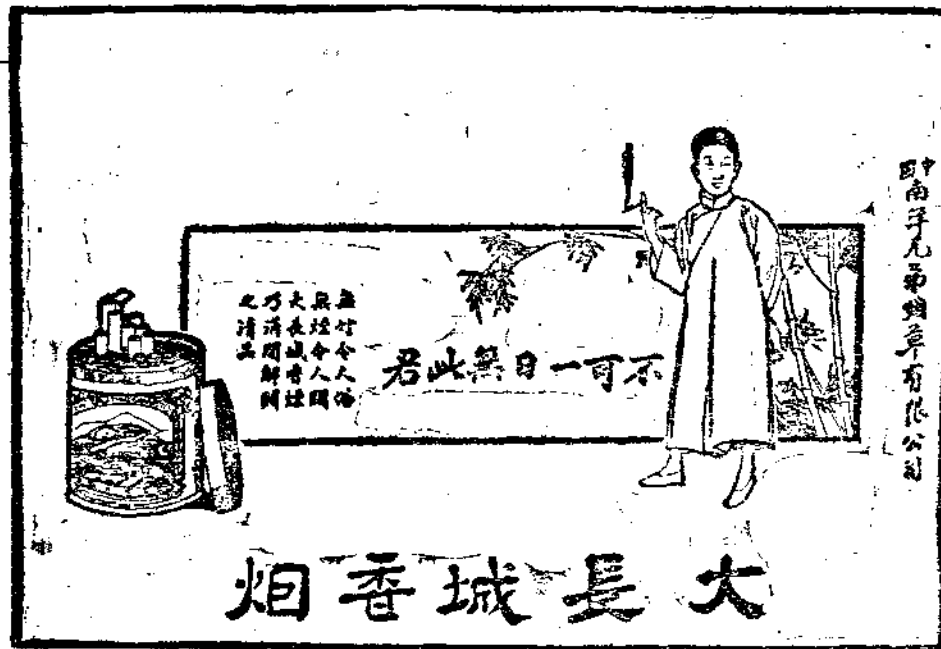 中國南洋兄弟煙草有限公司
不可一日無此君
無竹令人俗
無煙令人悶
大長城香煙
乃消閒解悶
之清品
大長城香烟